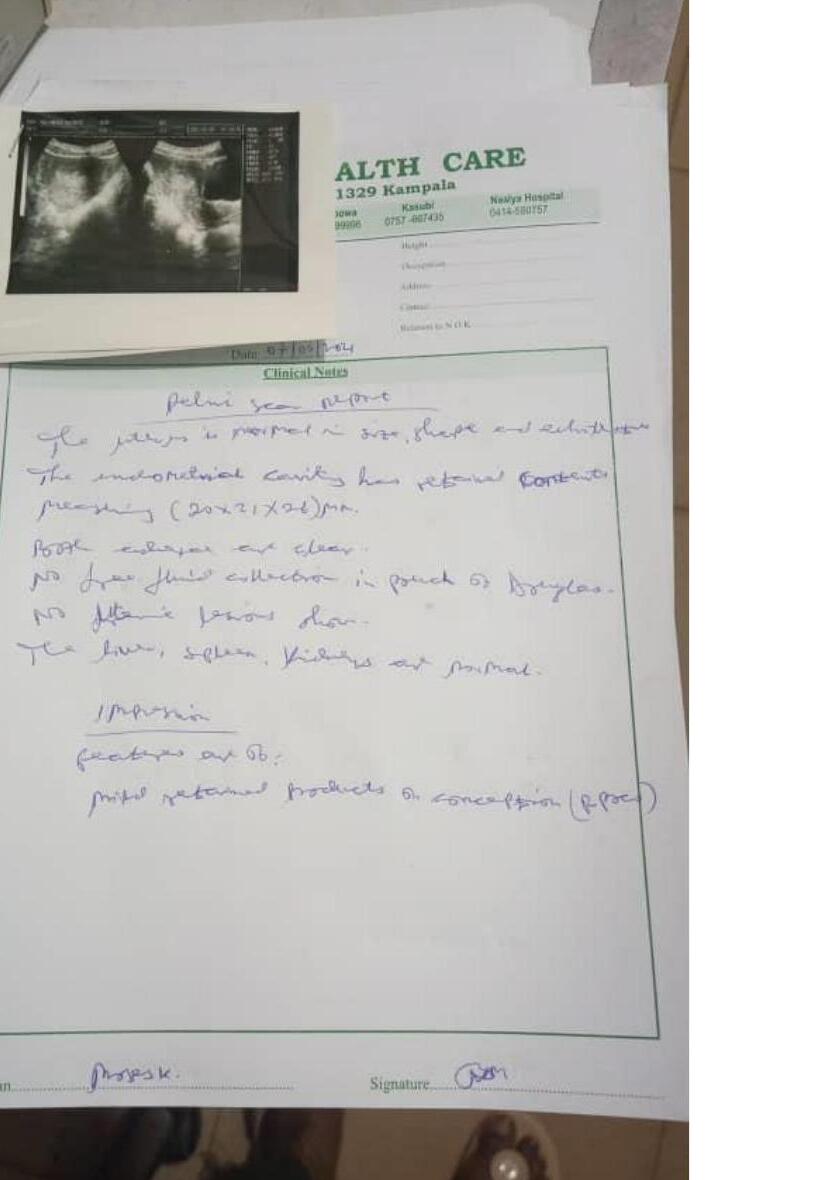 ALTH CARE
1329 Kampala
Kasubi
Nsalya Hospital
99996 0757 -607435 0414-580757
Height
Occupation
Address
Contact
Relation to N.O.K
Date 07/05/2021
Clinical Notes
Pelvic scan report
The uterus is normal in size, shape and
The endometrial cavity has retained Contents
measuring (20x21x26)mm.
Both adnexae are clear.
No free fluid collection in pouch of Douglas.
No lesions
The liver, spleen, kidneys are normal.
Impression
features are of:
mild retained products of conception (RPOC)
Moses K.
Signature